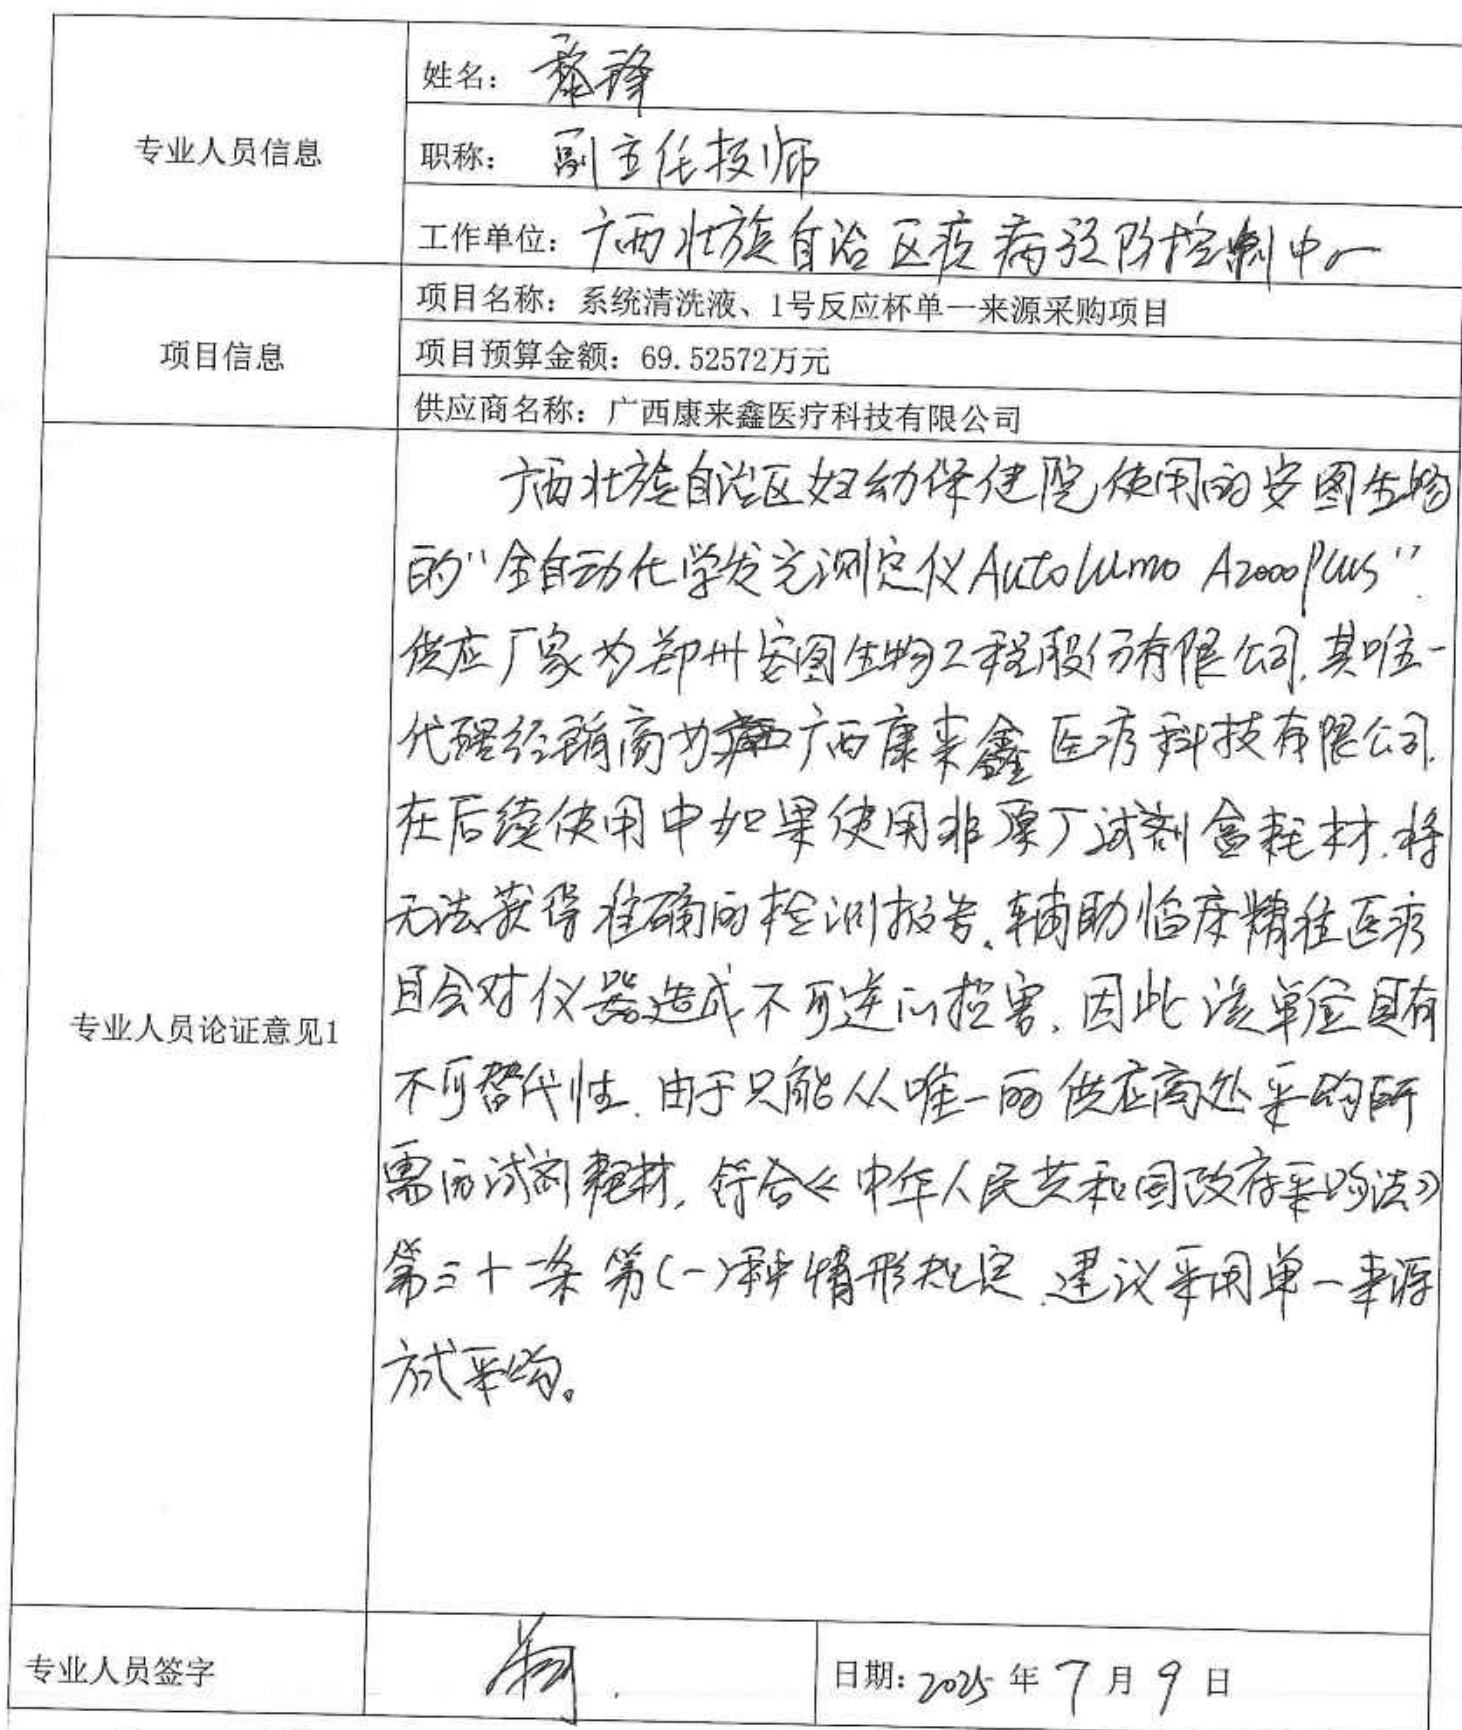 专业人员信息
姓名：黎锋
职称：副主任技师
工作单位：广西壮族自治区疾病预防控制中心
项目信息
项目名称：系统清洗液、1号反应杯单一来源采购项目
项目预算金额：69.52572万元
供应商名称：广西康来鑫医疗科技有限公司
专业人员论证意见1
广西壮族自治区妇幼保健院使用的安图生物
的“全自动化学发光测定仪AutoLumo A2000Plus”.
供应厂家为郑州安图生物工程股份有限公司,其唯一
代理经销商为广西康来鑫医疗科技有限公司.
在后续使用中如果使用非原厂试剂盒耗材.将
无法获得准确的检测报告、辅助临床精准医疗
且会对仪器造成不可逆的损害.因此该单位具有
不可替代性.由于只能从唯一的供应商处采购所
需的试剂耗材,符合《中华人民共和国政府采购法》
第三十一条第(一)种情形规定.建议采用单一来源
方式采购。
专业人员签字
日期：2025年7月9日